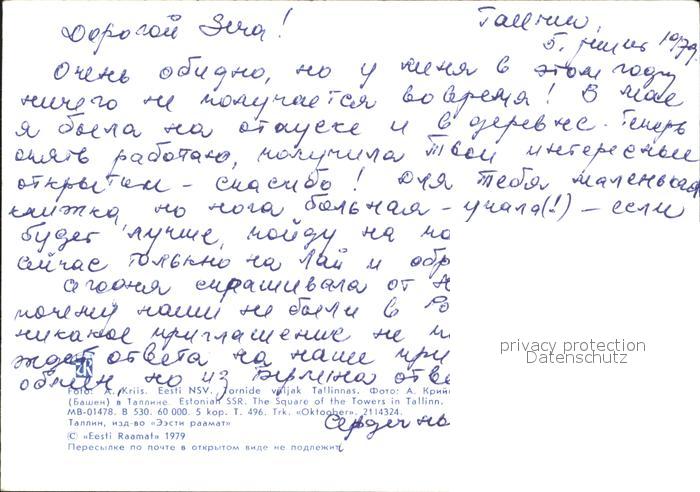 Таллин,
Дорогой Зеча!
5. июня 1979.
Очень обидно, но у меня в этом году
ничего не получается вовремя! В мае
я была на отпуске и в деревне. Теперь
опять работаю, получила твои интересные
открытки - спасибо! Для тебя маленькая
книжка, но нога больная - упала(!) - если
будет лучше, пойду на по
сейчас только на Лай и обр
Сегодня спрашивала от Н
почему наши не были в Ро
никакое приглашение не п
ждет ответа на наше при
обмен, но из Берлина отве
Foto: A. Kriis. Eesti NSV. Tornide väljak Tallinnas. Фото: А. Крий
(Башен) в Таллине. Estonian SSR. The Square of the Towers in Tallinn.
MB-01478. B 530. 60 000. 5 kop. T. 496. Trk. «Oktoober». 2114324.
Таллин, изд-во «Ээсти раамат»
© «Eesti Raamat» 1979
Пересылке по почте в открытом виде не подлежит
Сердечно
privacy protection
Datenschutz